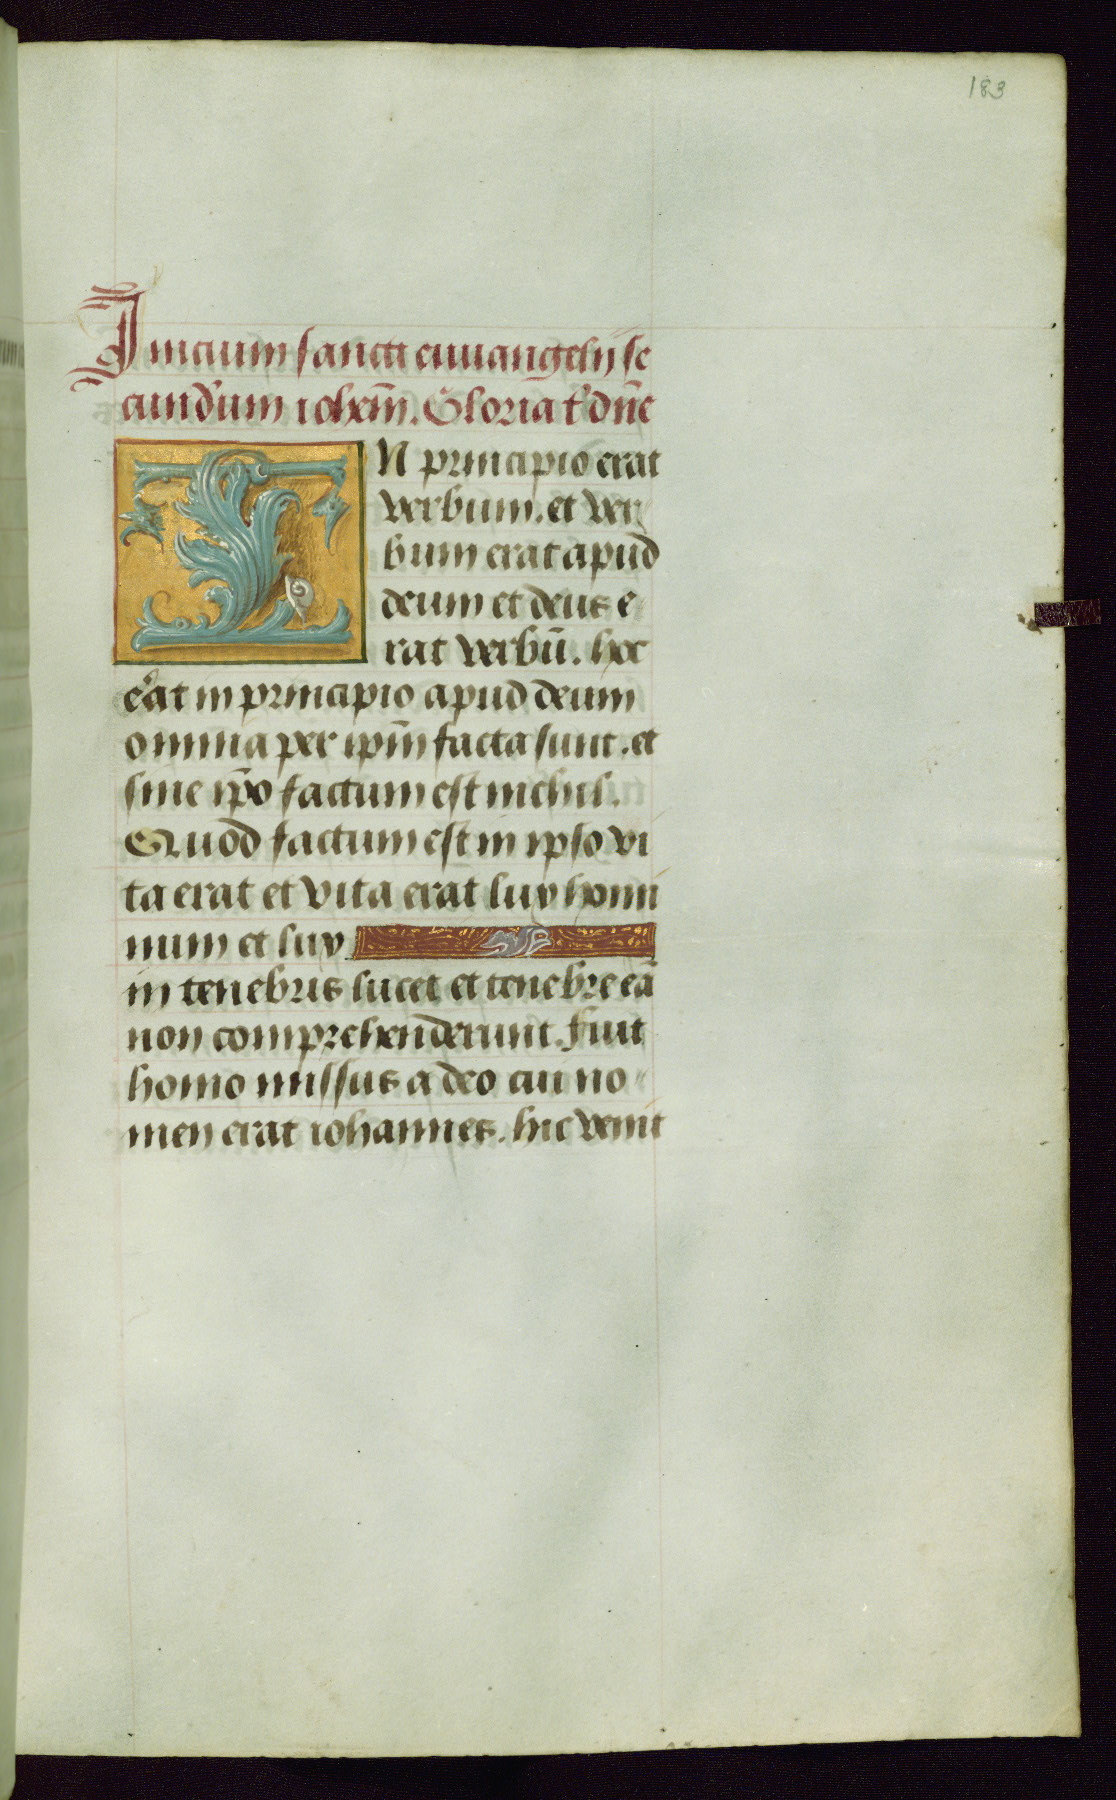 183
Inicium sancti euuangelij se
cund'um ioh'em̄. Gloria t' dn̄e
IN principio erat
verbum. et ver
bum erat apud
deum et deus e
rat verbū. hoc
erat in principio apud deum
omnia per ip̄m facta sunt. et
sine ip̄o factum est nichil.
Quod factum est in ipso vi
ta erat et vita erat lux homi
num et lux
in tenebris lucet et tenebre eā
non comprehenderunt. Fuit
homo missus a deo cui no
men erat iohannes. hic venit